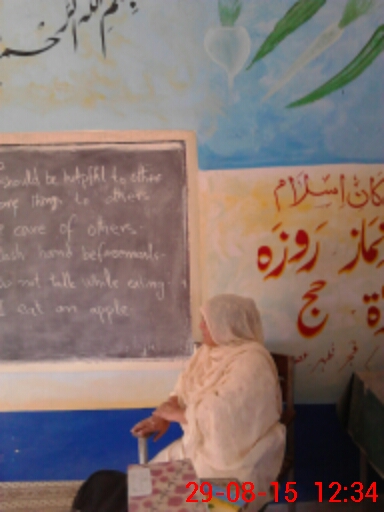 بسم الله الرحمن
should be helpful to other
things to others
care of others.
wash hand before meals.
do not talk while eating.
I eat an apple.
ارکان اسلام
نماز روزہ
حج
29-08-15 12:34